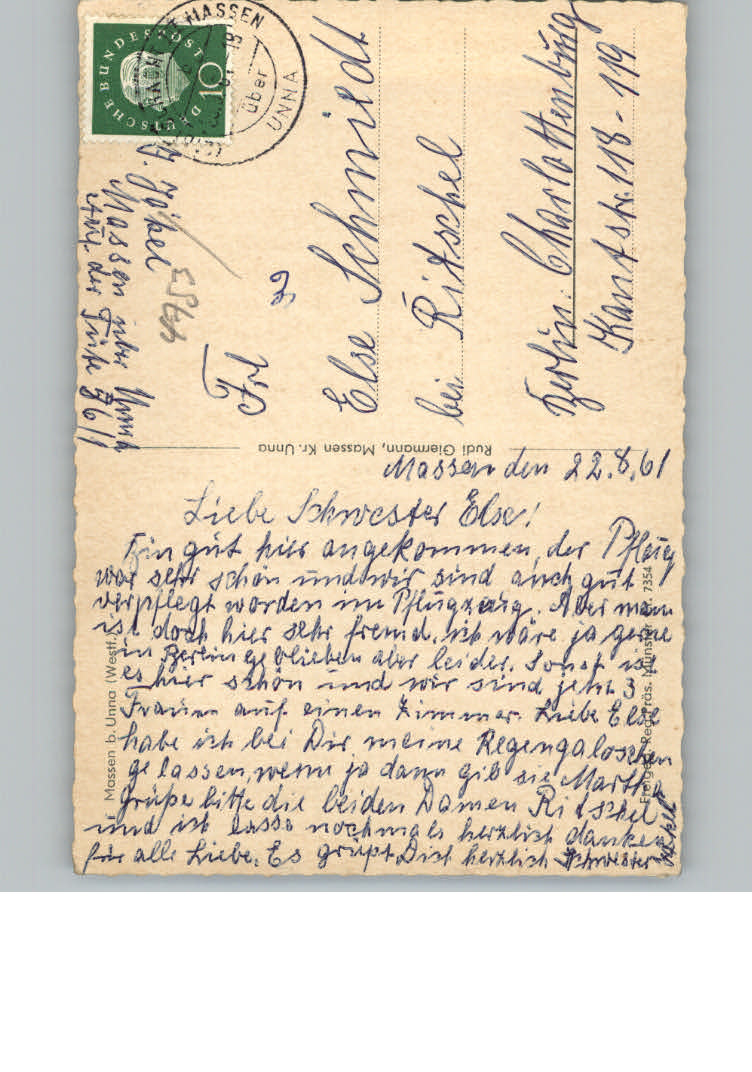 DEUTSCHE BUNDESPOST
10
MASSEN
über
UNNA
J. Jökel
Massen über Unna
Auf der Tüte 56/1
Frl
Else Schmiedt
bei Ritschel
Berlin. Charlottenburg
Kantstr. 118-119
Rudi Giermann, Massen Kr. Unna
Massen b. Unna (Westf.)
Freigeg. Reg. Präs. Münster Nr. 7354
Massen den 22.8.61
Liebe Schwester Else!
Bin gut hier angekommen, der Pflaug
war sehr schön und wir sind auch gut
verpflegt worden im Pflugzeug. Aber man
ist doch hier sehr fremd. ich wäre ja gerne
in Berlin geblieben aber leider. Sonst ist
es hier schön und wir sind jetzt 3
Frauen auf einen Zimmer. Liebe Else
habe ich bei Dir meine Regengaloschen
gelassen, wenn ja dann gib sie Martha
Grüße bitte die beiden Damen Ritschel
und ich lasse nochmals herzlich danken
für alle Liebe. Es grüßt Dich herzlich Schwester
Jökel